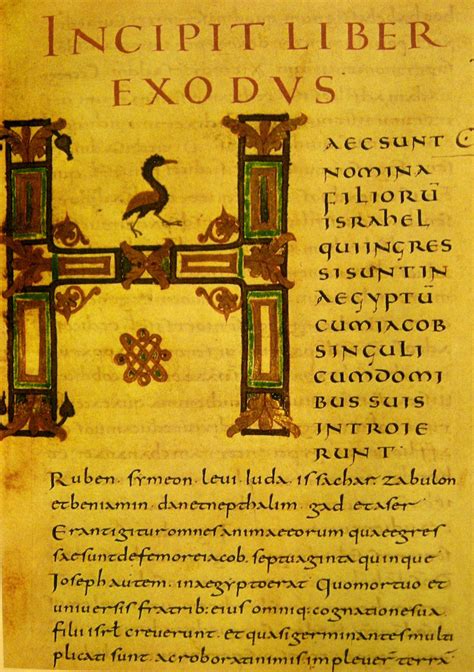 INCIPIT LIBER
EXODVS
HAEC SUNT
NOMINA
FILIORŪ
ISRAHEL
QUIINGRES
SISUNTIN
AEGYPTŪ
CUMIACOB
SINGULI
CUMDOMI
BUS SUIS
INTROIE
RUNT
Ruben. symeon. levi. iuda. issachar. zabulon
etbeniamin. danetnepthalim. gad. etaser
Erantigituromnesanimaeeorum quaeegres
saesuntdefemoreiacob. septuaginta quinque
Ioseph autem. inaegyptoerat. Quomortuo et
universis fratrib: eius omniq: cognationesua.
filii isrl creverunt. et quasigerminantes multi
plicati sunt. acroboratinimis impleverterrā